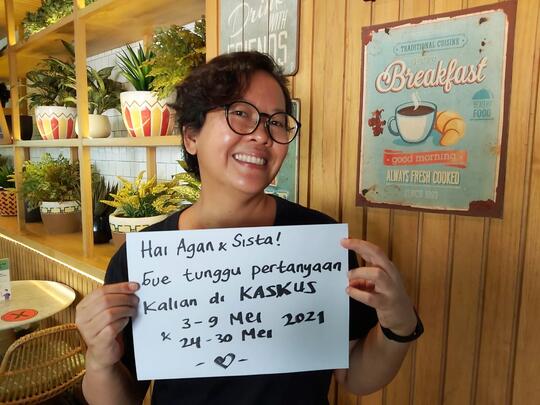 Drink
WITH
FRIENDS
TRADITIONAL CUISINE
Breakfast
HEALTHY
FOOD
good morning
ALWAYS FRESH COOKED
Hai Agan & Sista!
Gue tunggu pertanyaan
Kalian di KASKUS
3-9 Mei 2021
& 24-30 Mei